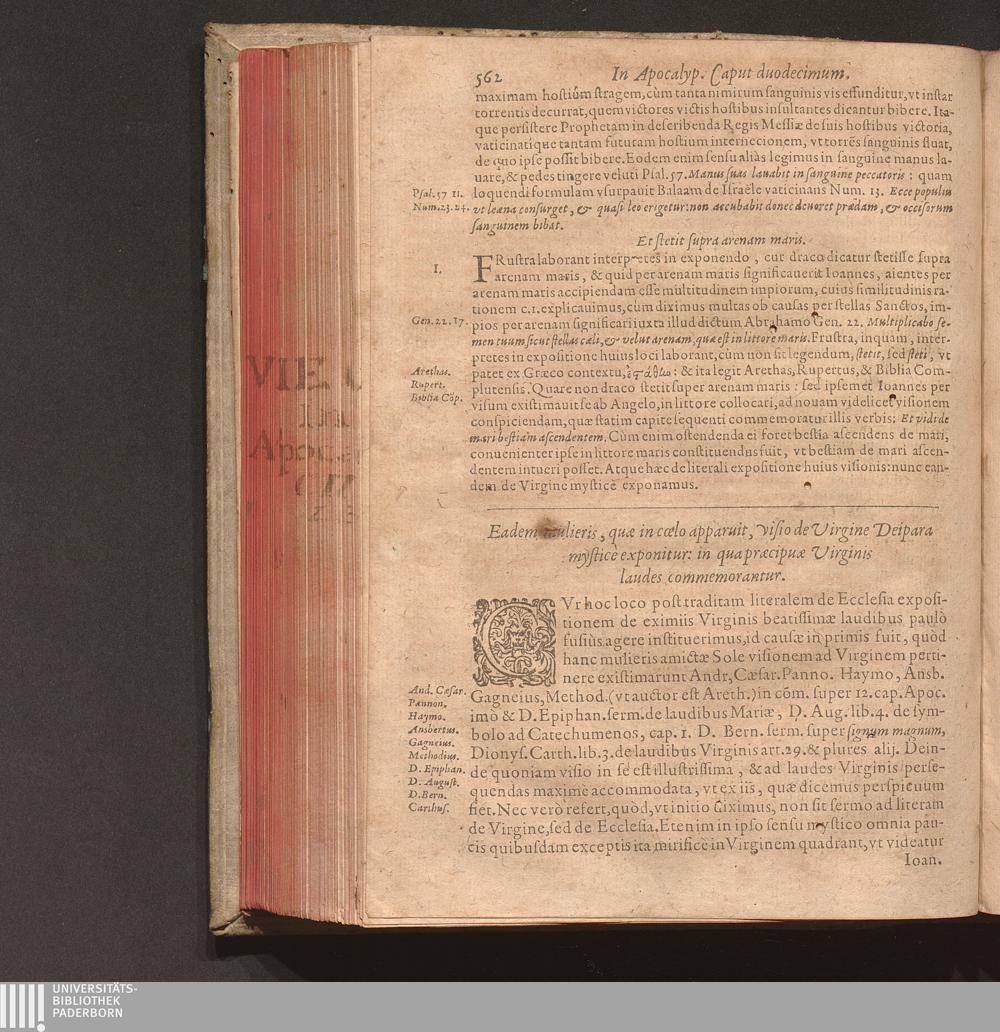 562 In Apocalyp. Caput duodecimum.
maximam hostiũm stragem, cùm tanta nimirum sanguinis vis effunditur, vt instar
torrentis decurrat, quem victores victis hostibus insultantes dicantur bibere. Ita-
que persistere Prophetam in describenda Regis Messiæ de suis hostibus victoria,
vaticinatique tantam futuram hostium internecionem, vt torrẽs sanguinis fluat,
de quo ipse possit bibere. Eodem enim sensu aliàs legimus in sanguine manus la-
uare, & pedes tingere veluti Psal. 57. Manus suas lauabit in sanguine peccatoris: quam
Psal. 57 11.
loquendi formulam vsurpauit Balaam de Israële vaticinans Num. 13. Ecce populus
Num. 23. 24.
vt leæna consurget, & quasi leo erigetur: non accubabit donec deuoret prædam, & occisorum
sanguinem bibat.
Et stetit supra arenam maris.
1.
FRustra laborant interpretes in exponendo, cur draco dicatur stetisse supra
arenam maris, & quid per arenam maris significauerit Ioannes, aientes per
arenam maris accipiendam esse multitudinem impiorum, cuius similitudinis ra-
tionem c. 1. explicauimus, cùm diximus multas ob causas per stellas Sanctos, im-
Gen. 22. 17.
pios per arenam significari iuxta illud dictum Abrahamo Gen. 22. Multiplicabo se-
men tuum sicut stellas cæli, & velut arenam, quæ est in littore maris. Frustra, inquam, inter-
pretes in expositione huius loci laborant, cùm non sit legendum, stetit, sed steti, vt
Arethas.
patet ex Græco contextu, ἐςάθlω: & ita legit Arethas, Rupertus, & Biblia Com-
Rupert.
plutensis. Quare non draco stetit super arenam maris: sed ipsemet Ioannes per
Biblia Cõp.
visum existimauit se ab Angelo, in littore collocari, ad nouam videlicet visionem
conspiciendam, quæ statim capite sequenti commemoratur illis verbis: Et vidi de
mari bestiam ascendentem. Cùm enim ostendenda ei foret bestia ascendens de mari,
conuenienter ipse in littore maris constituendus fuit, vt bestiam de mari ascen-
dentem intueri posset. Atque hæc de literali expositione huius visionis: nunc ean-
dem de Virgine mysticè exponamus.
Eadem mulieris, quæ in cœlo apparuit, visio de Virgine Deipara
mysticè exponitur: in qua præcipuæ Virginis
laudes commemorantur.
CVr hoc loco post traditam literalem de Ecclesia exposi-
tionem de eximiis Virginis beatissimæ laudibus paulò
fusiùs agere instituerimus, id causæ in primis fuit, quòd
hanc mulieris amictæ Sole visionem ad Virginem perti-
nere existimarunt Andr, Cæsar. Panno. Haymo, Ansb.
And. Cæsar.
Gagneius, Method. (vt auctor est Areth.) in cõm. super 12. cap. Apoc.
Pannon.
Haymo.
imò & D. Epiphan. serm. de laudibus Mariæ, D. Aug. lib. 4. de sym-
Ansbertus.
bolo ad Catechumenos, cap. 1. D. Bern. serm. super signum magnum,
Gagneius.
Methodius.
Dionys. Carth. lib. 3. de laudibus Virginis art. 29. & plures alij. Dein-
D. Epiphan.
de quoniam visio in se est illustrissima, & ad laudes Virginis perse-
D. August.
quendas maximè accommodata, vt ex iis, quæ dicemus perspicuum
D. Bern.
Carthus.
fiet. Nec verò refert, quòd, vt initio diximus, non sit sermo ad literam
de Virgine, sed de Ecclesia. Etenim in ipso sensu mystico omnia pau-
cis quibusdam exceptis ita mirificè in Virginem quadrant, vt videatur
Ioan.
UNIVERSITÄTS-
BIBLIOTHEK
PADERBORN